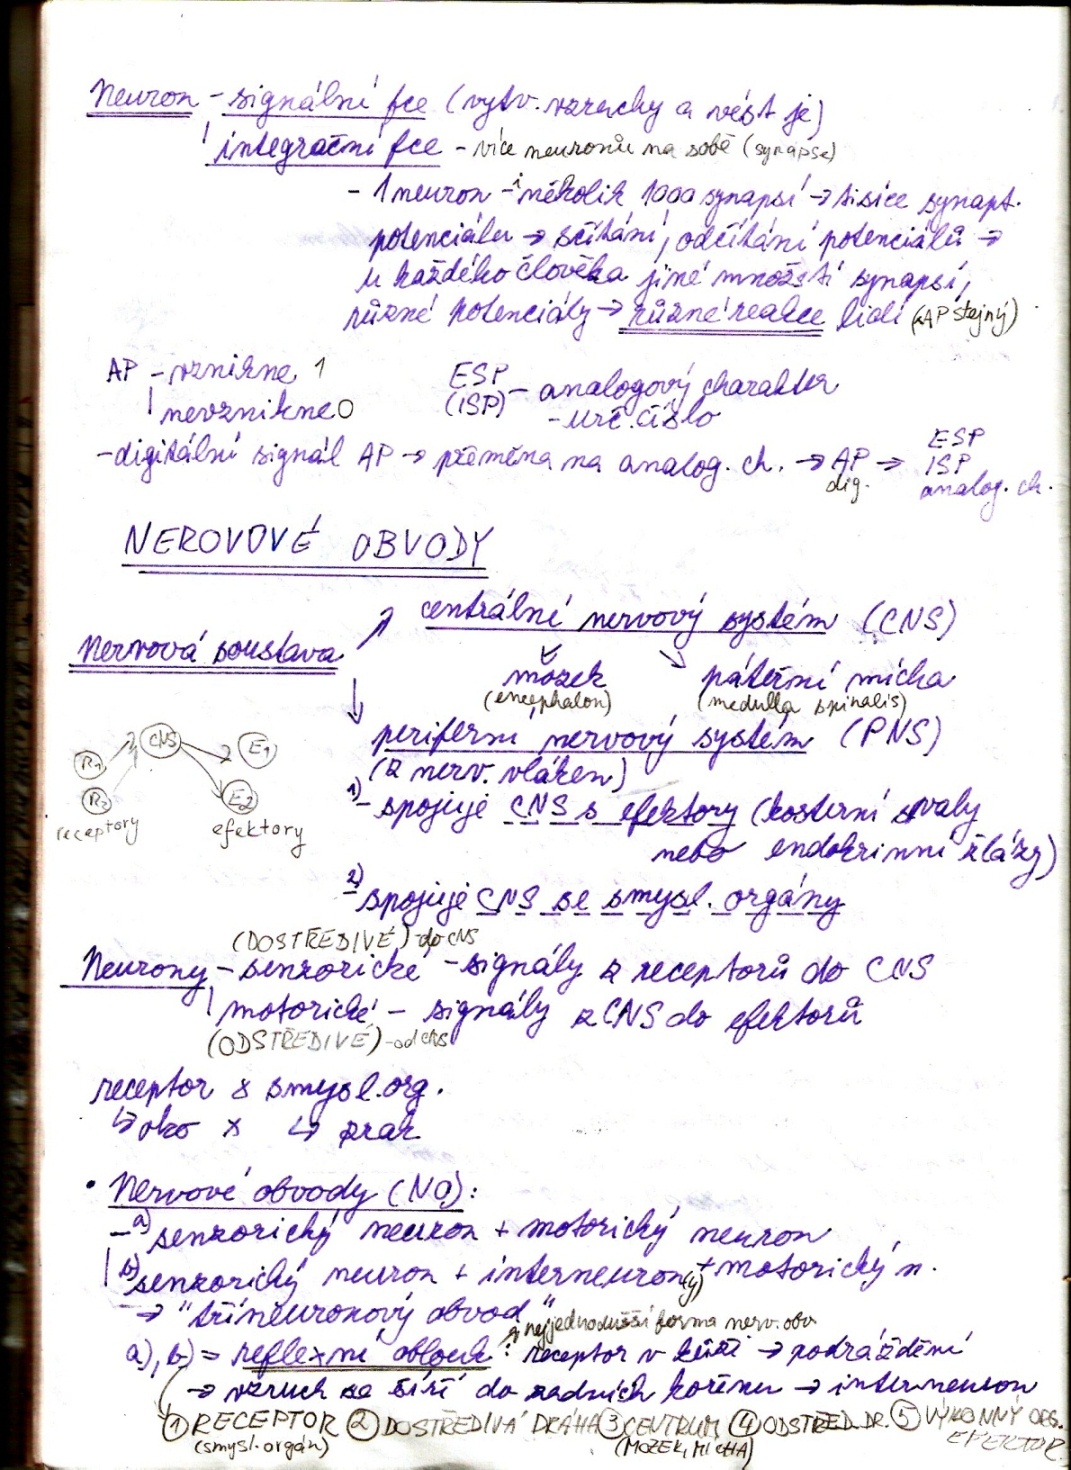 Neuron - signální fce (vytv. vzruchy a vést je)
integrační fce - více neuronů na sobě (synapse)
- 1 neuron - i několik 1000 synapsí → tisíce synapt.
potenciálu → sčítání, odčítání potenciálů →
u každého člověka jiné množství synapsí,
různé potenciály → různé reakce lidí (AP stejný)
AP - vznikne 1
nevznikne 0
ESP
(ISP) - analogový charakter
- urč. číslo
- digitální signál AP → přeměna na analog. ch. → AP → ESP
dig. ISP
analog. ch.
NEROVOVÉ OBVODY
centrální nervový systém (CNS)
Nervová soustava
mozek páteřní mícha
(encephalon) (medulla spinalis)
periferní nervový systém (PNS)
(z nerv. vláken)
R1 CNS E1
R2 E2
receptory efektory
1) - spojuje CNS s efektory (kosterní svaly
nebo endokrinní žlázy)
2) spojuje CNS se smysl. orgány
(DOSTŘEDIVÉ) do CNS
Neurony - senzorické - signály z receptorů do CNS
motorické - signály z CNS do efektorů
(ODSTŘEDIVÉ) - od CNS
receptor x smysl. org.
↳ oko x ↳ zrak
• Nervové obvody (NO):
- a) senzorický neuron + motorický neuron
b) senzorický neuron + interneuron(y) + motorický n.
→ "tříneuronový obvod"
nejjednodušší forma nerv. obv
a), b) = reflexní oblouk: receptor v kůži → podráždění
→ vzruch se šíří do zadních kořenu → interneuron
① RECEPTOR ② DOSTŘEDIVÁ DRÁHA ③ CENTRUM ④ ODSTŘED. DR. ⑤ VÝKONNÝ ORG.
(smysl. orgán) (MOZEK, MÍCHA) EFEKTOR